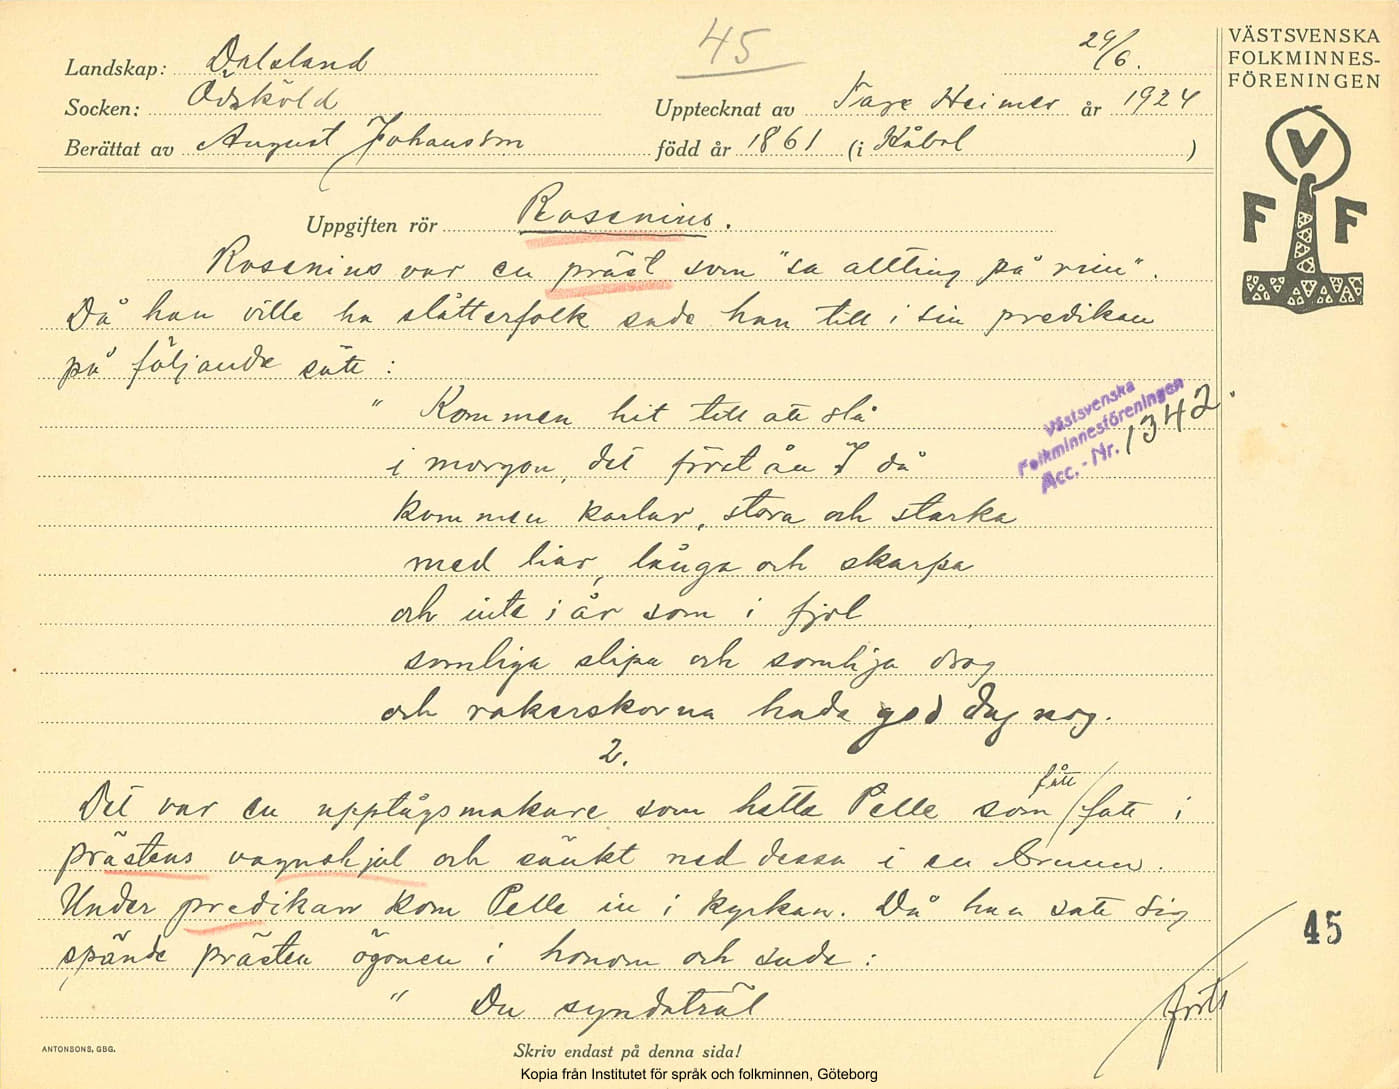 45
29/6.
VÄSTSVENSKA
FOLKMINNES-
FÖRENINGEN
Landskap: Dalsland
Socken: Ödsköld
Upptecknat av Tage Heimer år 1924
Berättat av August Johansson
född år 1861 (i Kåbol)
V
F F
Uppgiften rör Rosenius.
Rosenius var en präst som "sa allting på rim".
Då han ville ha slåtterfolk sade han till i sin predikan
på följande sätt:
" Kommen hit till att slå
i morgon, det förstån I då
kommen karlar, stora och starka
med liar, långa och skarpa
och inte i år som i fjol
somliga slipa och somliga drog
och rakerskorna hade god dag nog.
Västsvenska
Folkminnesföreningen
Acc.-Nr. 1342.
2.
Det var en upptågsmakare som hette Pelle som fått fatt i
prästens vagnshjul och sänkt ned dessa i en brunn.
Under predikan kom Pelle in i kyrkan. Då han satt sig
spände prästen ögonen i honom och sade:
" Du syndaträl
45
forts
ANTONSONS, GBG.
Skriv endast på denna sida!
Kopia från Institutet för språk och folkminnen, Göteborg